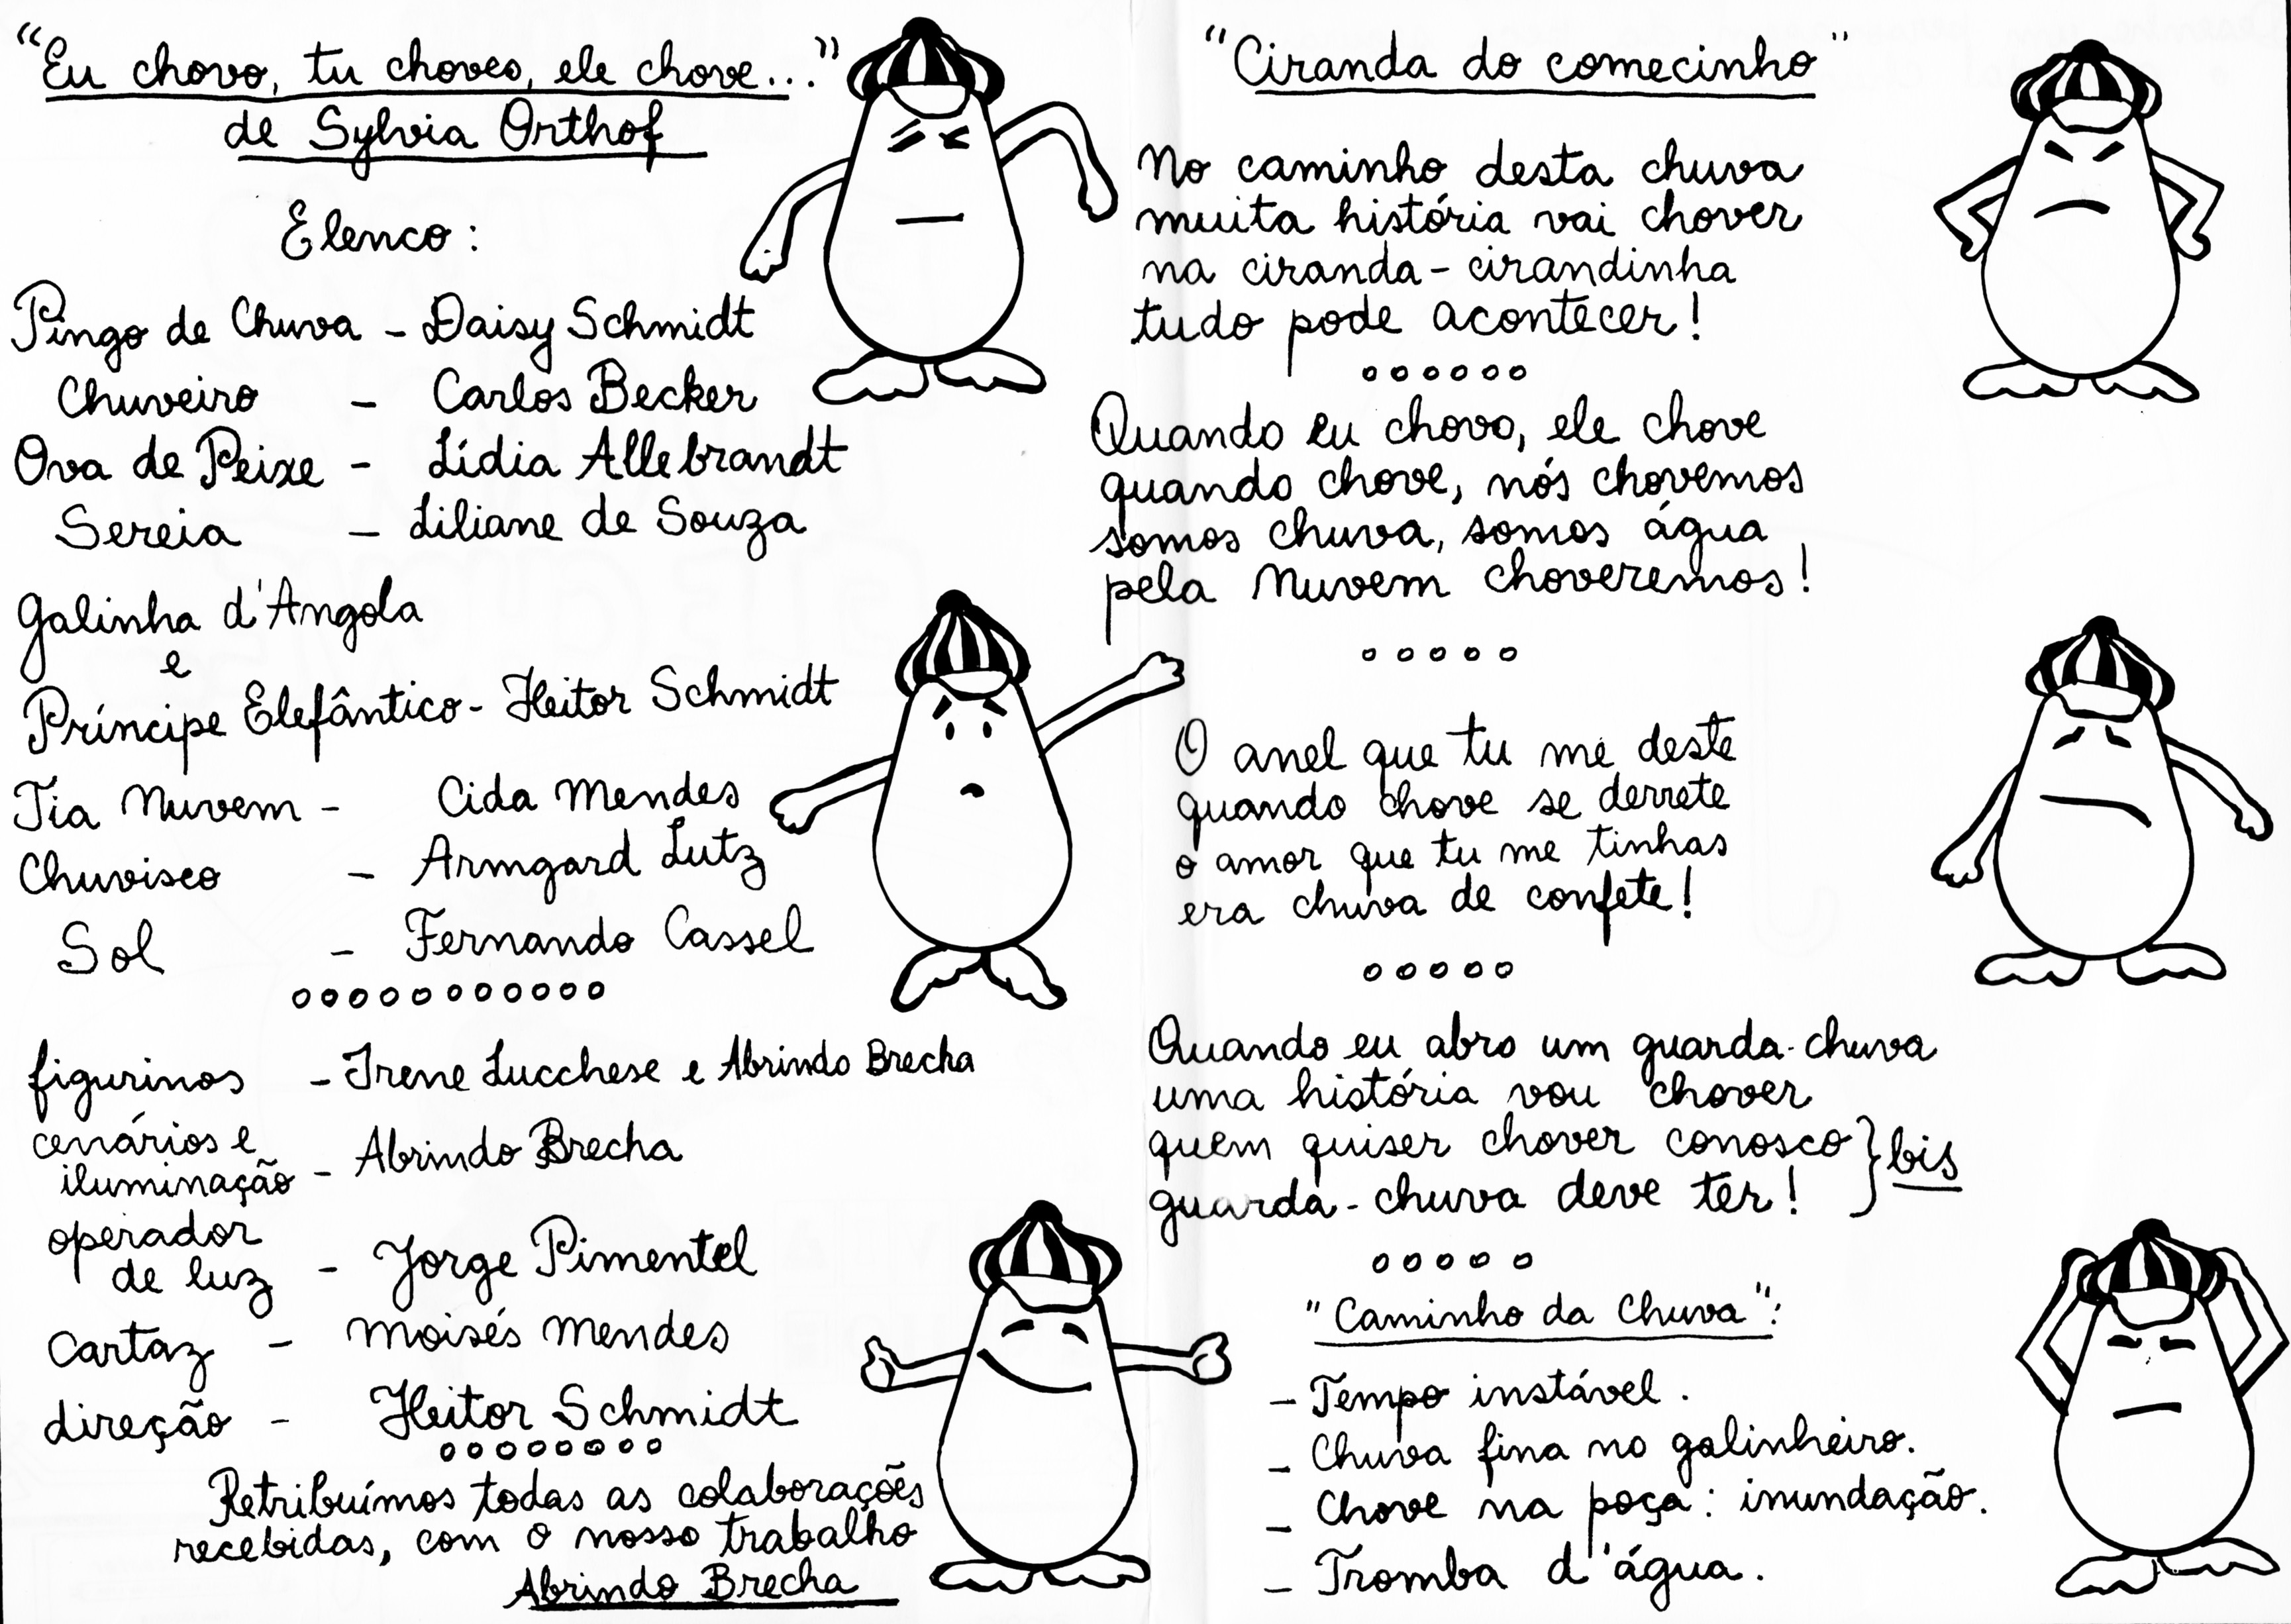 "Eu chovo, tu choves, ele chove..."
de Sylvia Orthof
Elenco:
Pingo de Chuva - Daisy Schmidt
Chuveiro - Carlos Becker
Ova de Peixe - Lídia Allebrandt
Sereia - Liliane de Souza
Galinha d'Angola
e
Príncipe Elefântico - Heitor Schmidt
Tia Nuvem - Cida Mendes
Chuvisco - Armgard Lutz
Sol - Fernando Cassel
figurinos - Irene Lucchese e Abrindo Brecha
cenários e
iluminação - Abrindo Brecha
operador
de luz - Jorge Pimentel
cartaz - Moisés Mendes
direção - Heitor Schmidt
Retribuímos todas as colaborações
recebidas, com o nosso trabalho
Abrindo Brecha
"Ciranda do comecinho"
No caminho desta chuva
muita história vai chover
na ciranda-cirandinha
tudo pode acontecer!
Quando eu chovo, ele chove
quando chove, nós chovemos
somos chuva, somos água
pela nuvem choveremos!
O anel que tu me deste
quando chove se derrete
o amor que tu me tinhas
era chuva de confete!
Quando eu abro um guarda-chuva
uma história vou chover
quem quiser chover conosco } bis
guarda-chuva deve ter!
"Caminho da Chuva":
- Tempo instável.
- Chuva fina no galinheiro.
- Chove na poça: inundação.
- Tromba d'água.